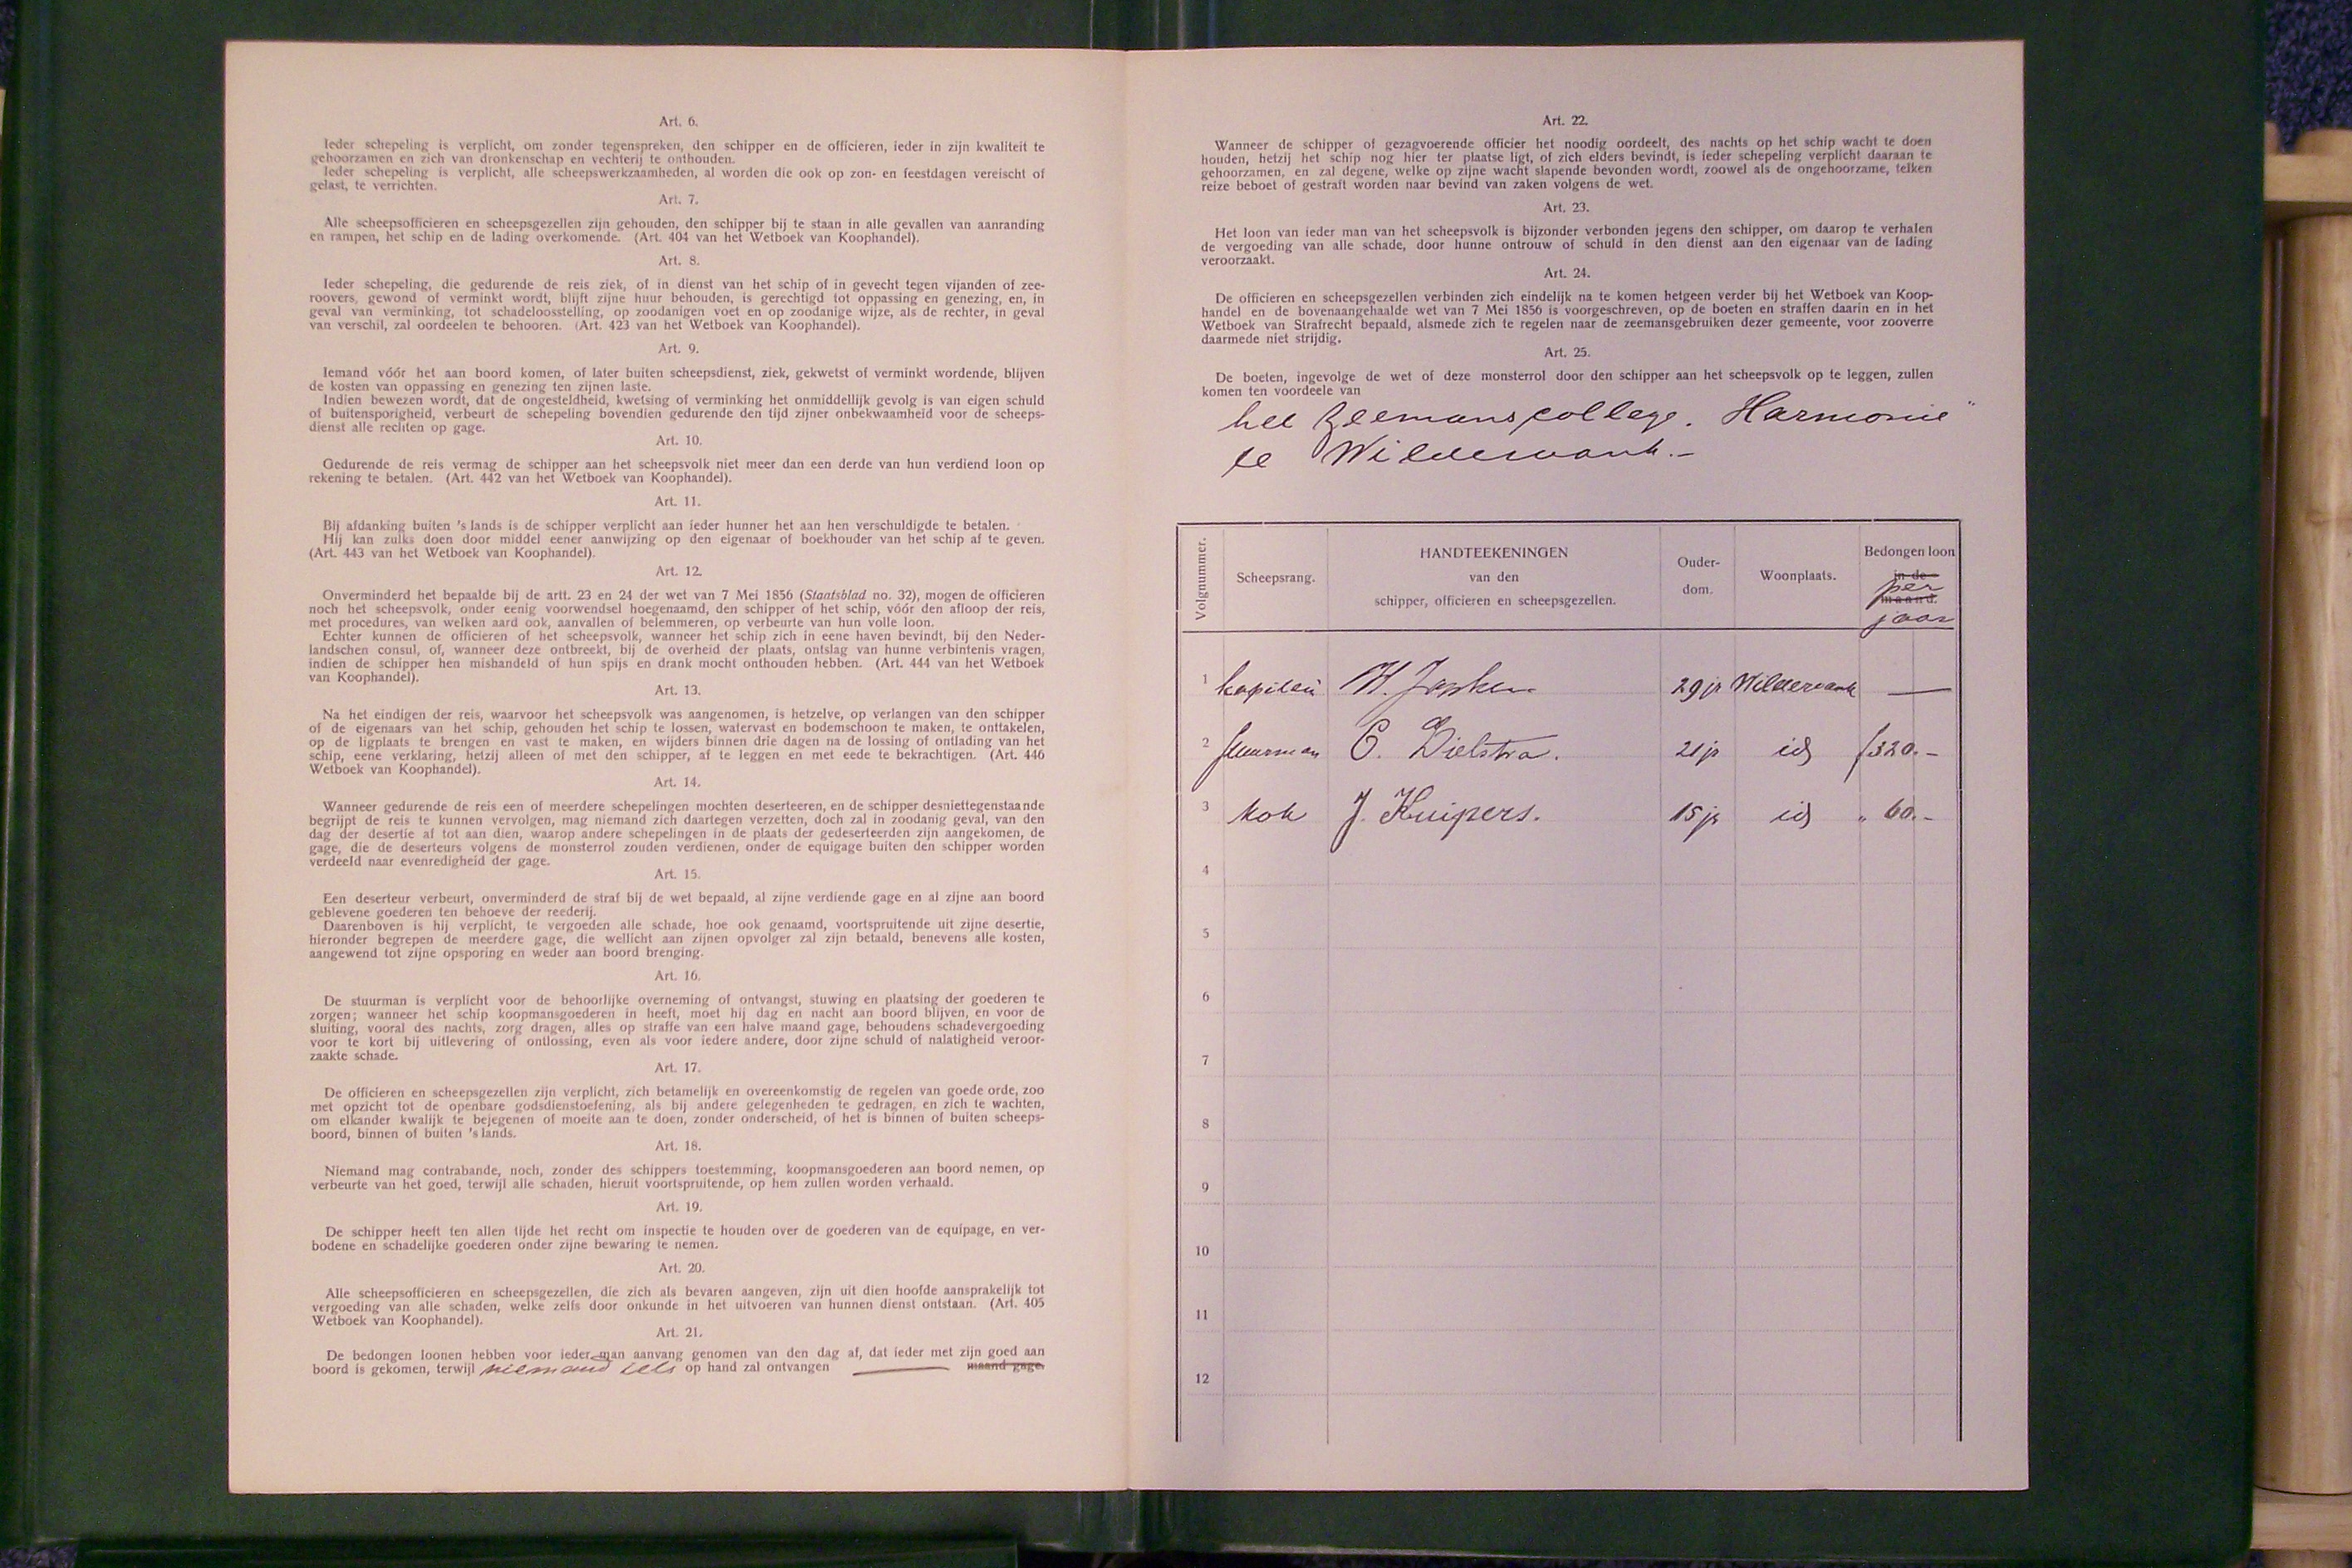 Art. 6.
Ieder schepeling is verplicht, om zonder tegenspreken, den schipper en de officieren, ieder in zijn kwaliteit te
gehoorzamen en zich van dronkenschap en vechterij te onthouden.
Ieder schepeling is verplicht, alle scheepswerkzaamheden, al worden die ook op zon- en feestdagen vereischt of
gelast, te verrichten.
Art. 7.
Alle scheepsofficieren en scheepsgezellen zijn gehouden, den schipper bij te staan in alle gevallen van aanranding
en rampen, het schip en de lading overkomende. (Art. 404 van het Wetboek van Koophandel).
Art. 8.
Ieder schepeling, die gedurende de reis ziek, of in dienst van het schip of in gevecht tegen vijanden of zee-
roovers, gewond of verminkt wordt, blijft zijne huur behouden, is gerechtigd tot oppassing en genezing, en, in
geval van verminking, tot schadeloosstelling, op zoodanigen voet en op zoodanige wijze, als de rechter, in geval
van verschil, zal oordeelen te behooren. (Art. 423 van het Wetboek van Koophandel).
Art. 9.
Iemand vóór het aan boord komen, of later buiten scheepsdienst, ziek, gekwetst of verminkt wordende, blijven
de kosten van oppassing en genezing ten zijnen laste.
Indien bewezen wordt, dat de ongesteldheid, kwetsing of verminking het onmiddellijk gevolg is van eigen schuld
of buitensporigheid, verbeurt de schepeling bovendien gedurende den tijd zijner onbekwaamheid voor de scheeps-
dienst alle rechten op gage.
Art. 10.
Gedurende de reis vermag de schipper aan het scheepsvolk niet meer dan een derde van hun verdiend loon op
rekening te betalen. (Art. 442 van het Wetboek van Koophandel).
Art. 11.
Bij afdanking buiten 's lands is de schipper verplicht aan ieder hunner het aan hen verschuldigde te betalen.
Hij kan zulks doen door middel eener aanwijzing op den eigenaar of boekhouder van het schip af te geven.
(Art. 443 van het Wetboek van Koophandel).
Art. 12.
Onverminderd het bepaalde bij de artt. 23 en 24 der wet van 7 Mei 1856 (Staatsblad no. 32), mogen de officieren
noch het scheepsvolk, onder eenig voorwendsel hoegenaamd, den schipper of het schip, vóór den afloop der reis,
met procedures, van welken aard ook, aanvallen of belemmeren, op verbeurte van hun volle loon.
Echter kunnen de officieren of het scheepsvolk, wanneer het schip zich in eene haven bevindt, bij den Neder-
landschen consul, of, wanneer deze ontbreekt, bij de overheid der plaats, ontslag van hunne verbintenis vragen,
indien de schipper hen mishandeld of hun spijs en drank mocht onthouden hebben. (Art. 444 van het Wetboek
van Koophandel).
Art. 13.
Na het eindigen der reis, waarvoor het scheepsvolk was aangenomen, is hetzelve, op verlangen van den schipper
of de eigenaars van het schip, gehouden het schip te lossen, watervast en bodemschoon te maken, te onttakelen,
op de ligplaats te brengen en vast te maken, en wijders binnen drie dagen na de lossing of ontlading van het
schip, eene verklaring, hetzij alleen of met den schipper, af te leggen en met eede te bekrachtigen. (Art. 446
Wetboek van Koophandel).
Art. 14.
Wanneer gedurende de reis een of meerdere schepelingen mochten deserteeren, en de schipper desniettegenstaande
begrijpt de reis te kunnen vervolgen, mag niemand zich daartegen verzetten, doch zal in zoodanig geval, van den
dag der desertie af tot aan dien, waarop andere schepelingen in de plaats der gedeserteerden zijn aangekomen, de
gage, die de deserteurs volgens de monsterrol zouden verdienen, onder de equigage buiten den schipper worden
verdeeld naar evenredigheid der gage.
Art. 15.
Een deserteur verbeurt, onverminderd de straf bij de wet bepaald, al zijne verdiende gage en al zijne aan boord
geblevene goederen ten behoeve der reederij.
Daarenboven is hij verplicht, te vergoeden alle schade, hoe ook genaamd, voortspruitende uit zijne desertie,
hieronder begrepen de meerdere gage, die wellicht aan zijnen opvolger zal zijn betaald, benevens alle kosten,
aangewend tot zijne opsporing en weder aan boord brenging.
Art. 16.
De stuurman is verplicht voor de behoorlijke overneming of ontvangst, stuwing en plaatsing der goederen te
zorgen; wanneer het schip koopmansgoederen in heeft, moet hij dag en nacht aan boord blijven, en voor de
sluiting, vooral des nachts, zorg dragen, alles op straffe van een halve maand gage, behoudens schadevergoeding
voor te kort bij uitlevering of ontlossing, even als voor iedere andere, door zijne schuld of nalatigheid veroor-
zaakte schade.
Art. 17.
De officieren en scheepsgezellen zijn verplicht, zich betamelijk en overeenkomstig de regelen van goede orde, zoo
met opzicht tot de openbare godsdienstoefening, als bij andere gelegenheden te gedragen, en zich te wachten,
om elkander kwalijk te bejegenen of moeite aan te doen, zonder onderscheid, of het is binnen of buiten scheeps-
boord, binnen of buiten 's lands.
Art. 18.
Niemand mag contrabande, noch, zonder des schippers toestemming, koopmansgoederen aan boord nemen, op
verbeurte van het goed, terwijl alle schaden, hieruit voortspruitende, op hem zullen worden verhaald.
Art. 19.
De schipper heeft ten allen tijde het recht om inspectie te houden over de goederen van de equipage, en ver-
bodene en schadelijke goederen onder zijne bewaring te nemen.
Art. 20.
Alle scheepsofficieren en scheepsgezellen, die zich als bevaren aangeven, zijn uit dien hoofde aansprakelijk tot
vergoeding van alle schaden, welke zelfs door onkunde in het uitvoeren van hunnen dienst ontstaan. (Art. 405
Wetboek van Koophandel).
Art. 21.
De bedongen loonen hebben voor ieder man aanvang genomen van den dag af, dat ieder met zijn goed aan
boord is gekomen, terwijl niemand iets op hand zal ontvangen — maand gage.
Art. 22.
Wanneer de schipper of gezagvoerende officier het noodig oordeelt, des nachts op het schip wacht te doen
houden, hetzij het schip nog hier ter plaatse ligt, of zich elders bevindt, is ieder schepeling verplicht daaraan te
gehoorzamen, en zal degene, welke op zijne wacht slapende bevonden wordt, zoowel als de ongehoorzame, telken
reize beboet of gestraft worden naar bevind van zaken volgens de wet.
Art. 23.
Het loon van ieder man van het scheepsvolk is bijzonder verbonden jegens den schipper, om daarop te verhalen
de vergoeding van alle schade, door hunne ontrouw of schuld in den dienst aan den eigenaar van de lading
veroorzaakt.
Art. 24.
De officieren en scheepsgezellen verbinden zich eindelijk na te komen hetgeen verder bij het Wetboek van Koop-
handel en de bovenaangehaalde wet van 7 Mei 1856 is voorgeschreven, op de boeten en straffen daarin en in het
Wetboek van Strafrecht bepaald, alsmede zich te regelen naar de zeemansgebruiken dezer gemeente, voor zooverre
daarmede niet strijdig.
Art. 25.
De boeten, ingevolge de wet of deze monsterrol door den schipper aan het scheepsvolk op te leggen, zullen
komen ten voordeele van
het Zeemanscollege. Harmonie"
te Wildervank.-
Volgnummer. Scheepsrang. HANDTEEKENINGEN van den schipper, officieren en scheepsgezellen. Ouder-dom. Woonplaats. Bedongen loon in de maand. per jaar
1 kapitein H. 29 jr Wildervank —
2 stuurman Dielstra. 21 jr id f 320.-
3 kok J. Kuipers. 15 jr id " 60.-
4
5
6
7
8
9
10
11
12